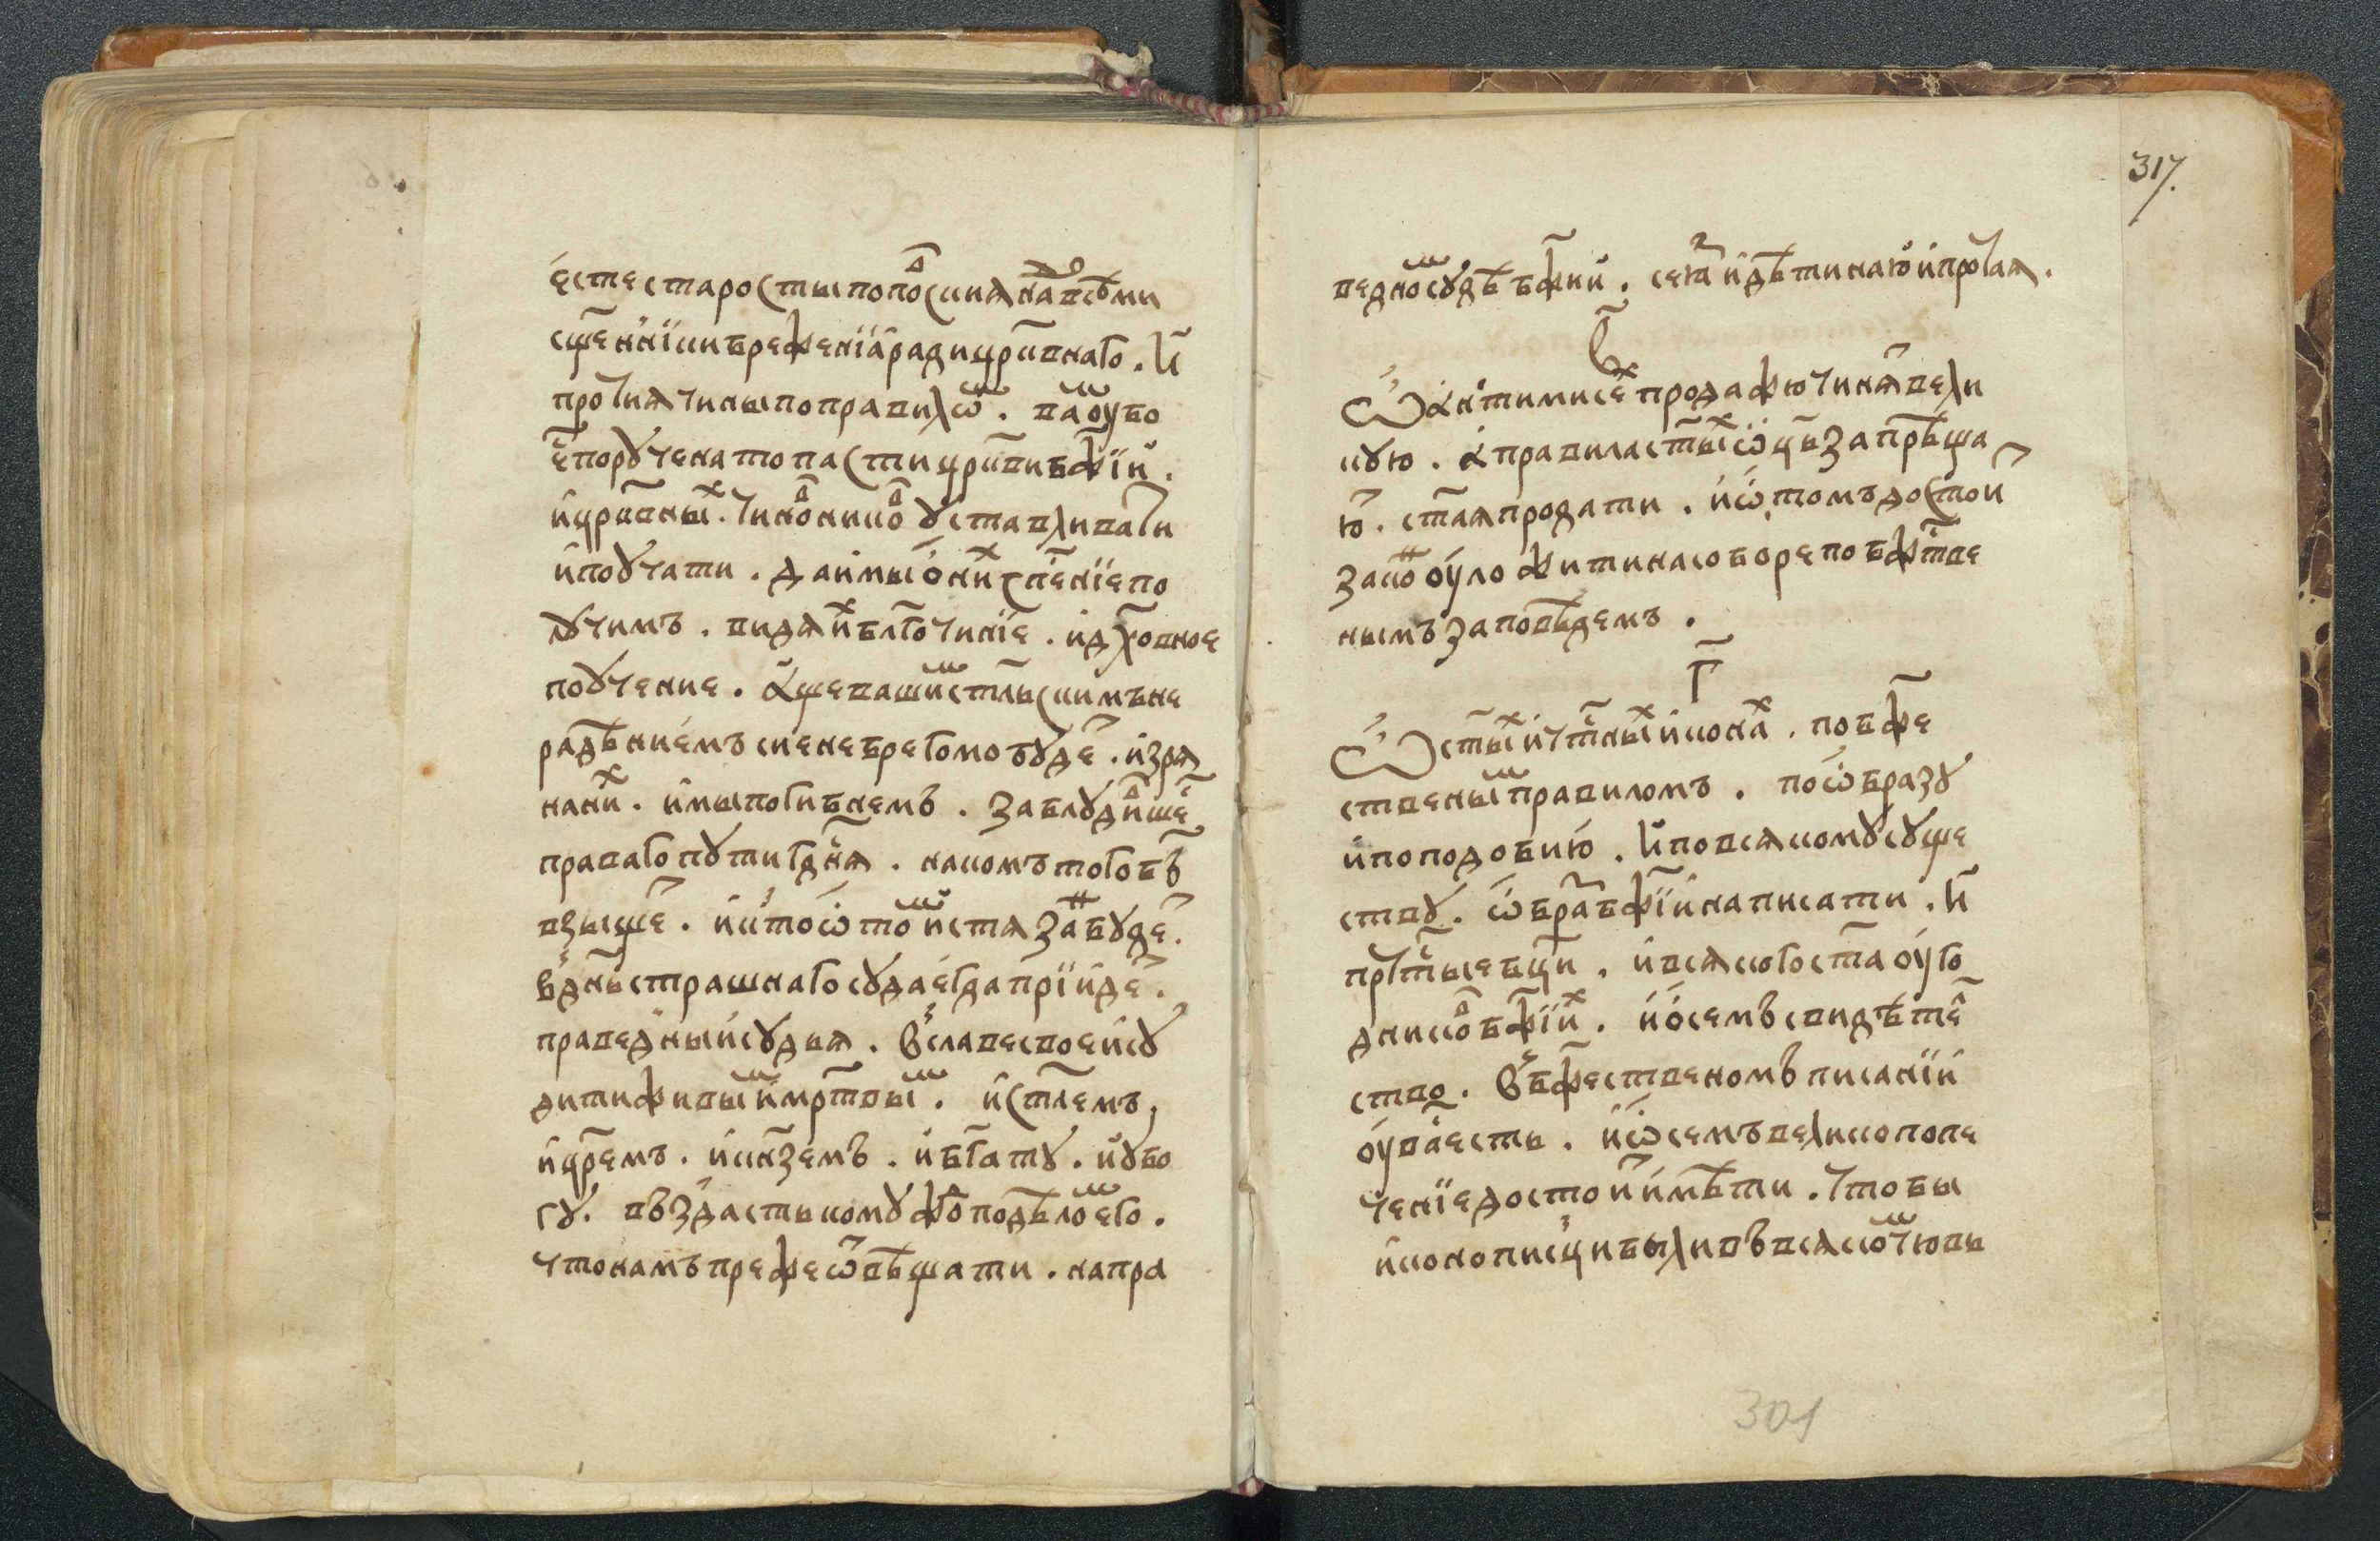 есте старосты попо̑вскиꙗ надвсѣми
сщ҃еникиибрежениꙗ ради црк҃внаго. И҆
прочиꙗ чины поправилѡⷨ. ваⷨ оубо
е҆ⷭ҇ порꙋчена то пасти црк҃ви бж҃їи.
и҆ црк҃вныⷯ. чиноⷡникоⷡ ꙋ҆ставливати
и҆ поꙋчати. да и҆ мы ѿ ниⷯ сп҃сенїе по
лꙋчимъ. видѧ иⷯ бл҃гочинїе. и҆ дх҃овное
поꙋчение. а҆ще вашиⷨ ст҃льскимъ не
радѣниемъ сиⷷ небрегомо бꙋдеⷮ. и҆ зрѧ
на ниⷯ. и҆ мы погибнемъ. заблꙋдиⷡшеⷭ҇
праваго пꙋти гд҃нѧ. на комъ того бг҃ъ
взыщеⷮ. и҆ кто ѡ҆ тоⷨ истѧзаⷩ бꙋдеⷮ.
в дн҃ь страшнаго сꙋда е҆гда прїидеⷮ.
праведный сꙋдьѧ. в славе своей сꙋ
дити живыⷨ и҆ мр҃твыⷨ. и҆ ст҃лемъ,
и҆ цр҃емъ. и҆ кн҃земъ. и҆ бг҃атꙋ. и҆ ꙋбо
гꙋ. въздасть комꙋжⷣо по дѣлоⷨ е҆го.
что намъ преже ѿвѣщати. на пра
317.
ведноⷨ сꙋдѣ бж҃ии. се ꙗ҆ⷥ и҆ дѣти наю҆ и҆ прⷪ҇чаꙗ.
в҃
Ѡ҆ а҆нтимисеⷯ продажю чинѧⷮ вели
кꙋю. а҆ правила ст҃ыⷯ ѡ҆ц҃ъ запрѣща
ю҆ⷮ. ст҃аꙗ продати. и҆ ѡ҆ томъ достои
законⷩ оуложити на соборе по бжⷭ҇тве
нымъ заповѣдемъ.
г҃
Ѡ҆ ст҃ыⷯ и҆ чⷭ҇тныⷯ и҆конаⷯ. по бж҃е
ственыⷨ правиломъ. по ѡ҆бразꙋ
и҆ по подобию҆. И҆ по всѧкомꙋ сꙋще
ствꙋ. ѡ҆браⷥ бж҃їи написати. И҆
прчⷭ҇тые бц҃и. и҆ всѧкого ст҃а оуго
дникоⷡ бж҃їиⷯ. и҆ ѡ҆ семъ свидѣтеⷧ
ство. в бж҃ественомъ писанїи
оу ваⷭ есть. и҆ ѡ҆ семъ велико попе
ченїе достоиⷮ имѣти. чтобы
и҆конописцы были въ всѧкоⷨ чювь
301